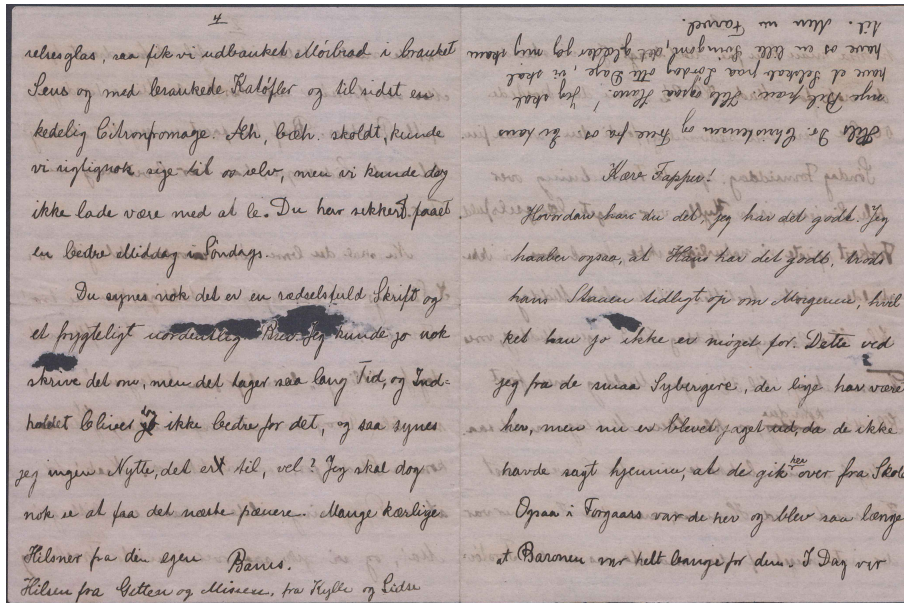 4
relsesglas, saa fik vi udbanket Mörbrad i brunket
Sens og med brunkede Katöfler og til sidst en
kedelig Citronfromage. Æh, bæh. skoldt, kunde
vi rigtignok sige til os selv, men vi kunde dog
ikke lade være med at le. Du har sikkert faaet
en bedre Middag i Söndags.
Du synes nok det er en rædselsfuld Skrift og
et frygteligt uordentlig Brev. Jeg kunde jo nok
skrive det om, men det tager saa lang Tid, og Ind=
holdet bliver dog ikke bedre for det, og saa synes
jeg ingen Nytte, det er til, vel? Jeg skal dog
nok se at faa det næste pænere. Mange kærlige
Hilsner fra din egen Banis.
Hilsen fra Gitten og Missen, fra Kylle og Sidse
Kære Tappen!
Hvordan har du det, jeg har det godt. Jeg
haaber ogsaa, at Hans har det godt, trods
hans Staaen tidligt op om Morgenen, hvil
ket han jo ikke er möget for. Dette ved
jeg fra de smaa Sybergere, der lige har være
her, men nu er blevet jaget ud, da de ikke
havde sagt hjemme, at de gik her over fra Skole
Ogsaa i Forgaars var de her og blev saa længe
at Baronen var helt bange for dem. I Dag var
Hils Dr. Christensen og Frue fra os Er hans
nye Bil pæn? Hils ogsaa Hans! Jeg skal
have et Selskab paa Lördag otte Dage, vi skal
have os en lille Svingom, det glæder jeg mig skam
til. Men nu Farvel.